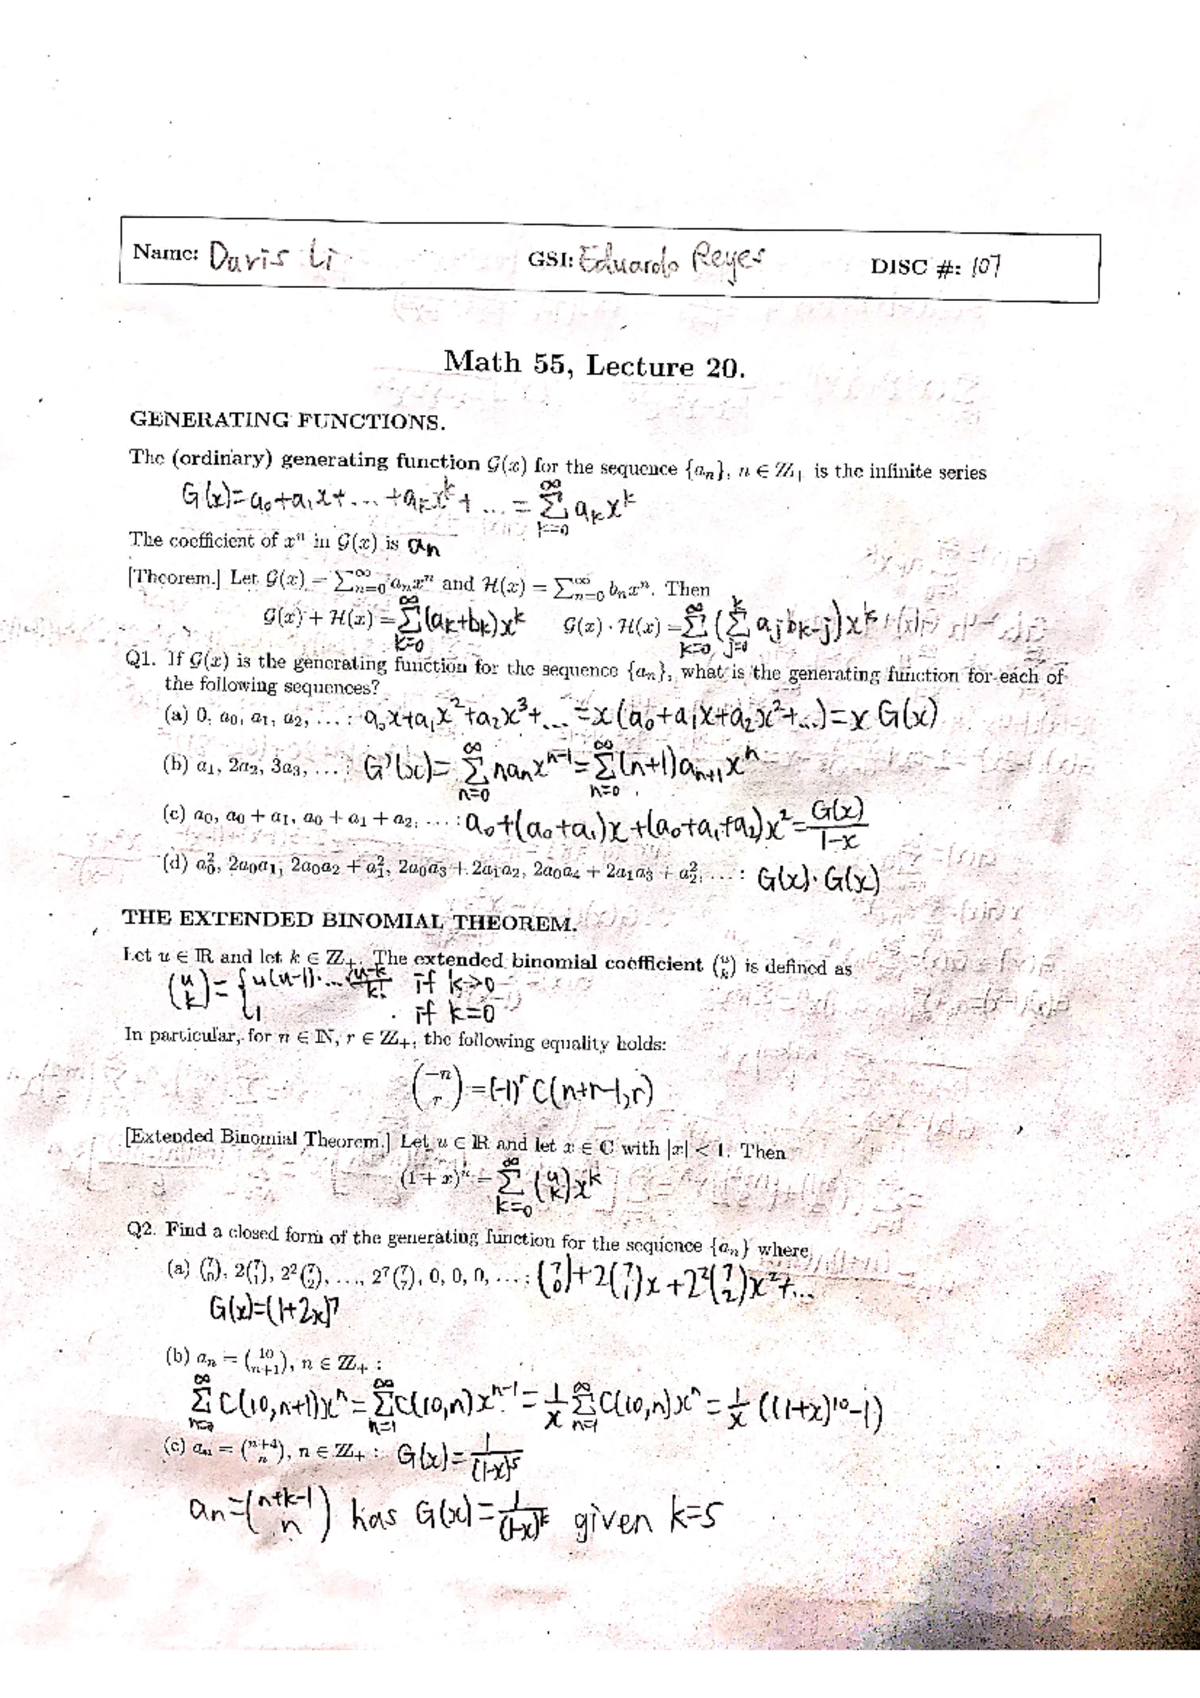 Name: Davis Li GSI: Eduardo Reyes DISC #: 107
Math 55, Lecture 20.
GENERATING FUNCTIONS.
The (ordinary) generating function G(x) for the sequence {aₙ}, n ∈ ℤ₊ is the infinite series
G(x)=a₀+a₁x+...+aₖxᵏ+...=∑_{k=0}^{∞} aₖxᵏ
The coefficient of xⁿ in G(x) is aₙ
[Theorem.] Let G(x) = ∑_{n=0}^{∞} aₙxⁿ and H(x) = ∑_{n=0}^{∞} bₙxⁿ. Then
G(x) + H(x) = ∑_{k=0}^{∞} (aₖ+bₖ)xᵏ G(x) · H(x) = ∑_{k=0}^{∞} (∑_{j=0}^{k} a_j b_{k-j})xᵏ
Q1. If G(x) is the generating function for the sequence {aₙ}, what is the generating function for each of
the following sequences?
(a) 0, a₀, a₁, a₂, ... : a₀x+a₁x²+a₂x³+...=x(a₀+a₁x+a₂x²+...)=x G(x)
(b) a₁, 2a₂, 3a₃, ... : G'(x)=∑_{n=0}^{∞} naₙxⁿ⁻¹=∑_{n=0}^{∞}(n+1)aₙ₊₁xⁿ
(c) a₀, a₀ + a₁, a₀ + a₁ + a₂, ... : a₀+(a₀+a₁)x+(a₀+a₁+a₂)x²=G(x)/(1-x)
(d) a₀², 2a₀a₁, 2a₀a₂ + a₁², 2a₀a₃ + 2a₁a₂, 2a₀a₄ + 2a₁a₃ + a₂², ... : G(x)·G(x)
THE EXTENDED BINOMIAL THEOREM.
Let u ∈ ℝ and let k ∈ ℤ₊. The extended binomial coefficient (u k) is defined as
(u k)={u(u-1)... k! if k>0
1 if k=0
In particular, for n ∈ ℕ, r ∈ ℤ₊, the following equality holds:
(-n r)=(-1)ʳ C(n+r-1,r)
[Extended Binomial Theorem.] Let u ∈ ℝ and let x ∈ ℂ with |x| < 1. Then
(1 + x)ᵘ = ∑_{k=0}^{∞} (u k)xᵏ
Q2. Find a closed form of the generating function for the sequence {aₙ} where
(a) (7 0), 2(7 1), 2²(7 2), ..., 2⁷(7 7), 0, 0, 0, ... : (7 0)+2(7 1)x+2²(7 2)x²+...
G(x)=(1+2x)⁷
(b) aₙ = (10 n+1), n ∈ ℤ₊ :
∑_{n=0}^{∞} C(10,n+1)xⁿ=∑_{n=1}^{∞} C(10,n)xⁿ⁻¹=1/x ∑_{n=1}^{∞} C(10,n)xⁿ=1/x ((1+x)¹⁰-1)
(c) aₙ = (n+4 n), n ∈ ℤ₊ : G(x)=1/(1-x)⁵
aₙ=(n+k-1 n) has G(x)=1/(1-x)ᵏ given k=5